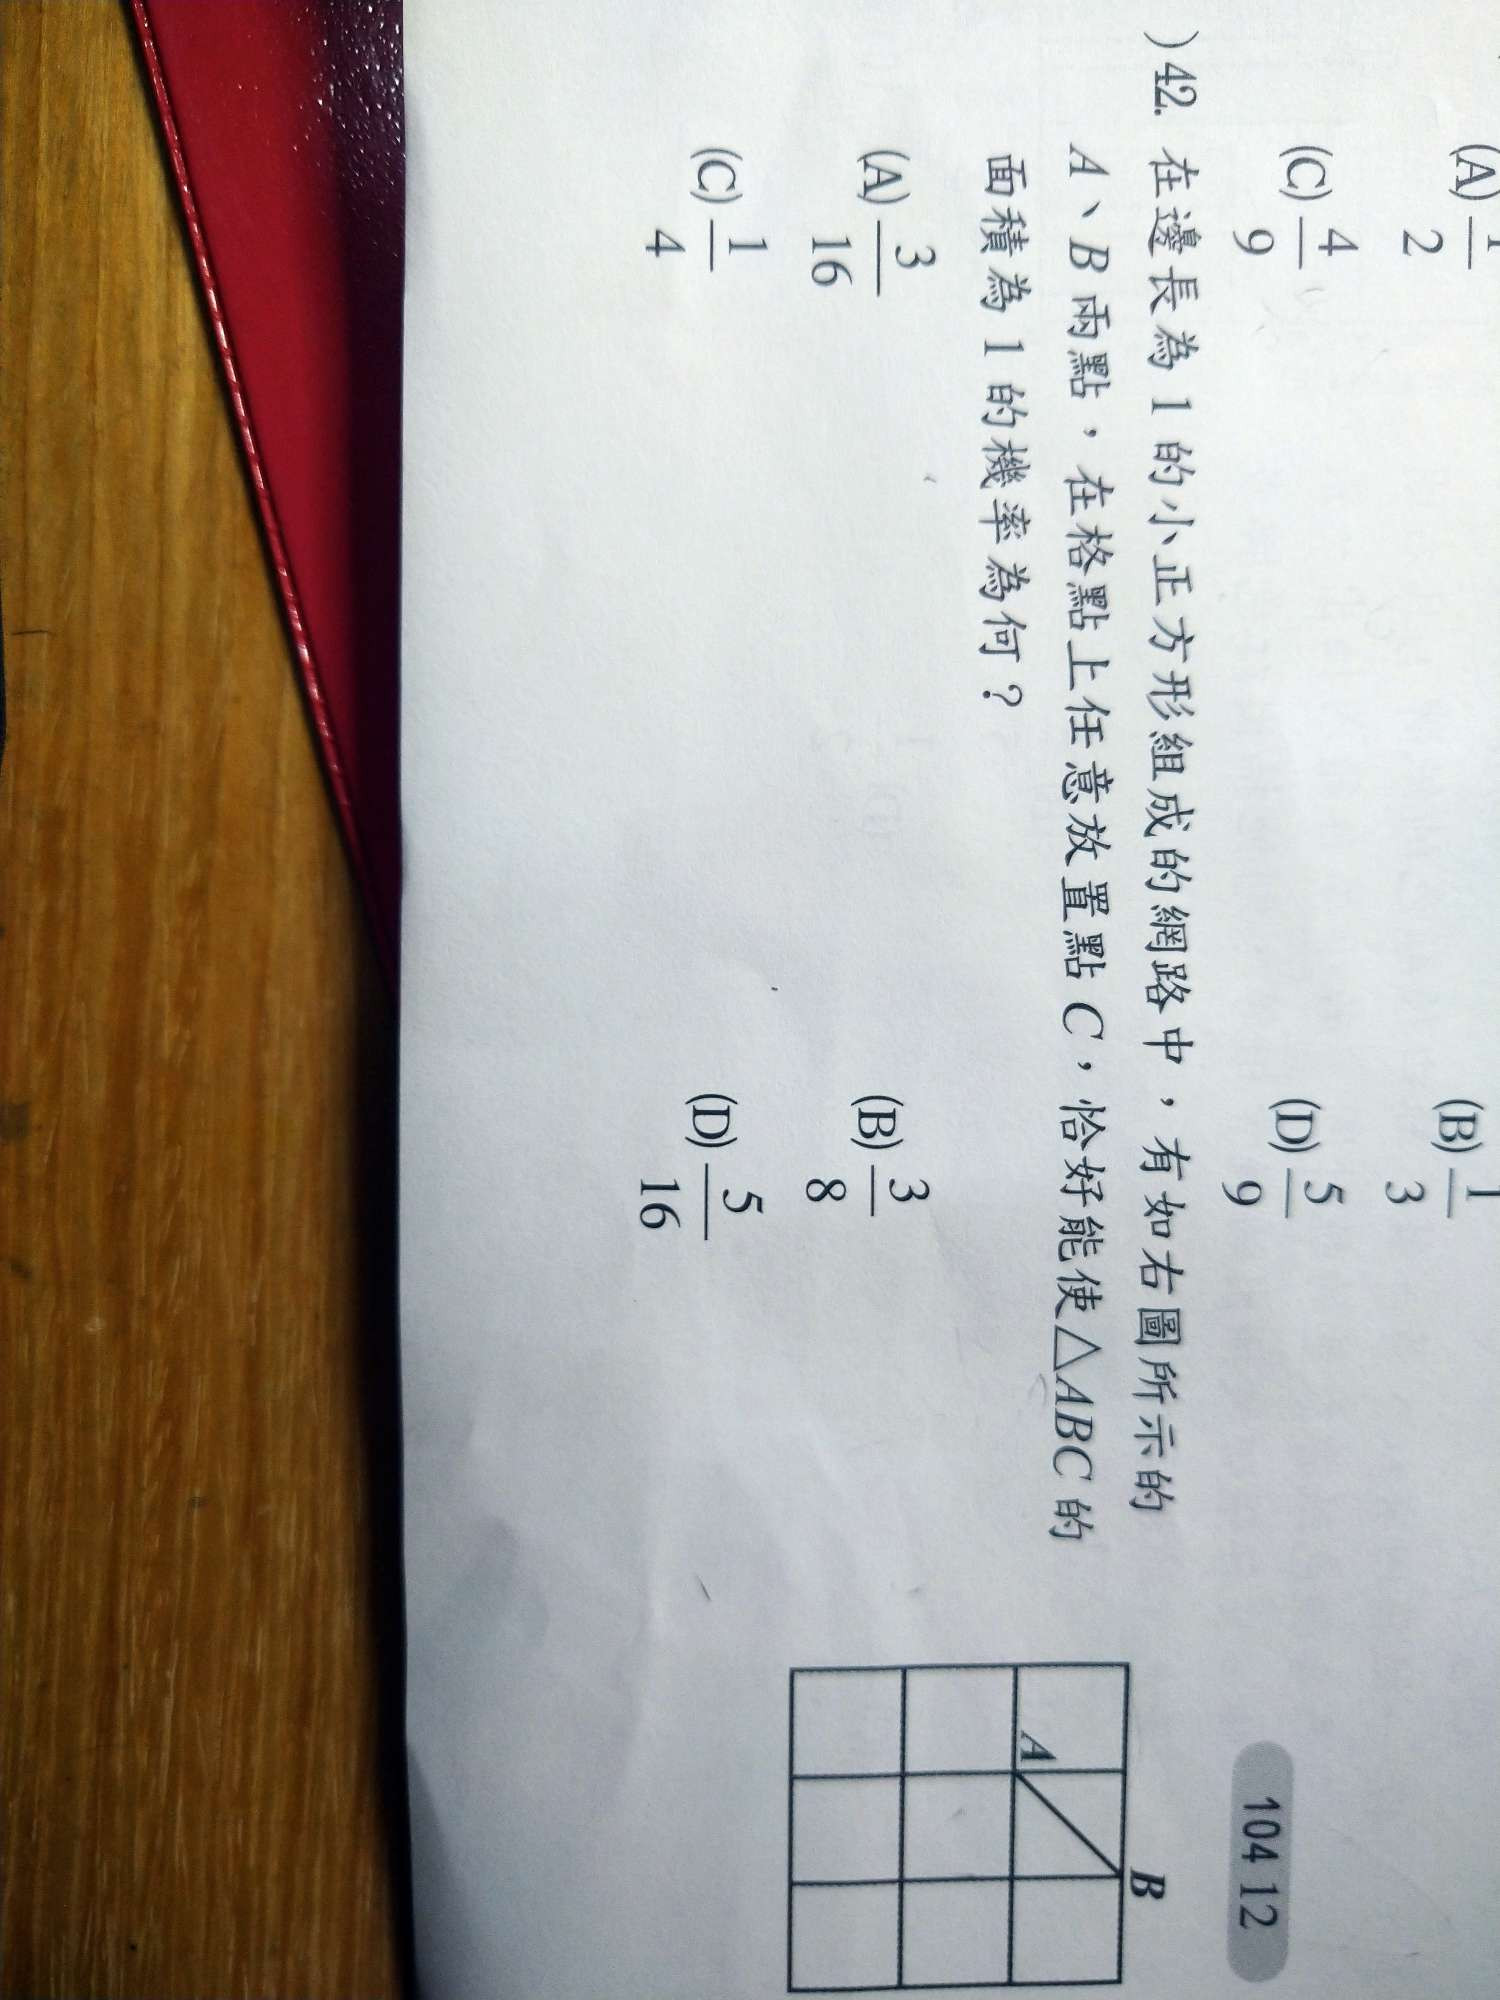 (A) 1/2 (B) 1/3
(C) 4/9 (D) 5/9
104 12
)42. 在邊長為 1 的小正方形組成的網路中，有如右圖所示的
A、B 兩點，在格點上任意放置點 C，恰好能使△ABC 的
面積為 1 的機率為何？
(A) 3/16 (B) 3/8
(C) 1/4 (D) 5/16
B
A